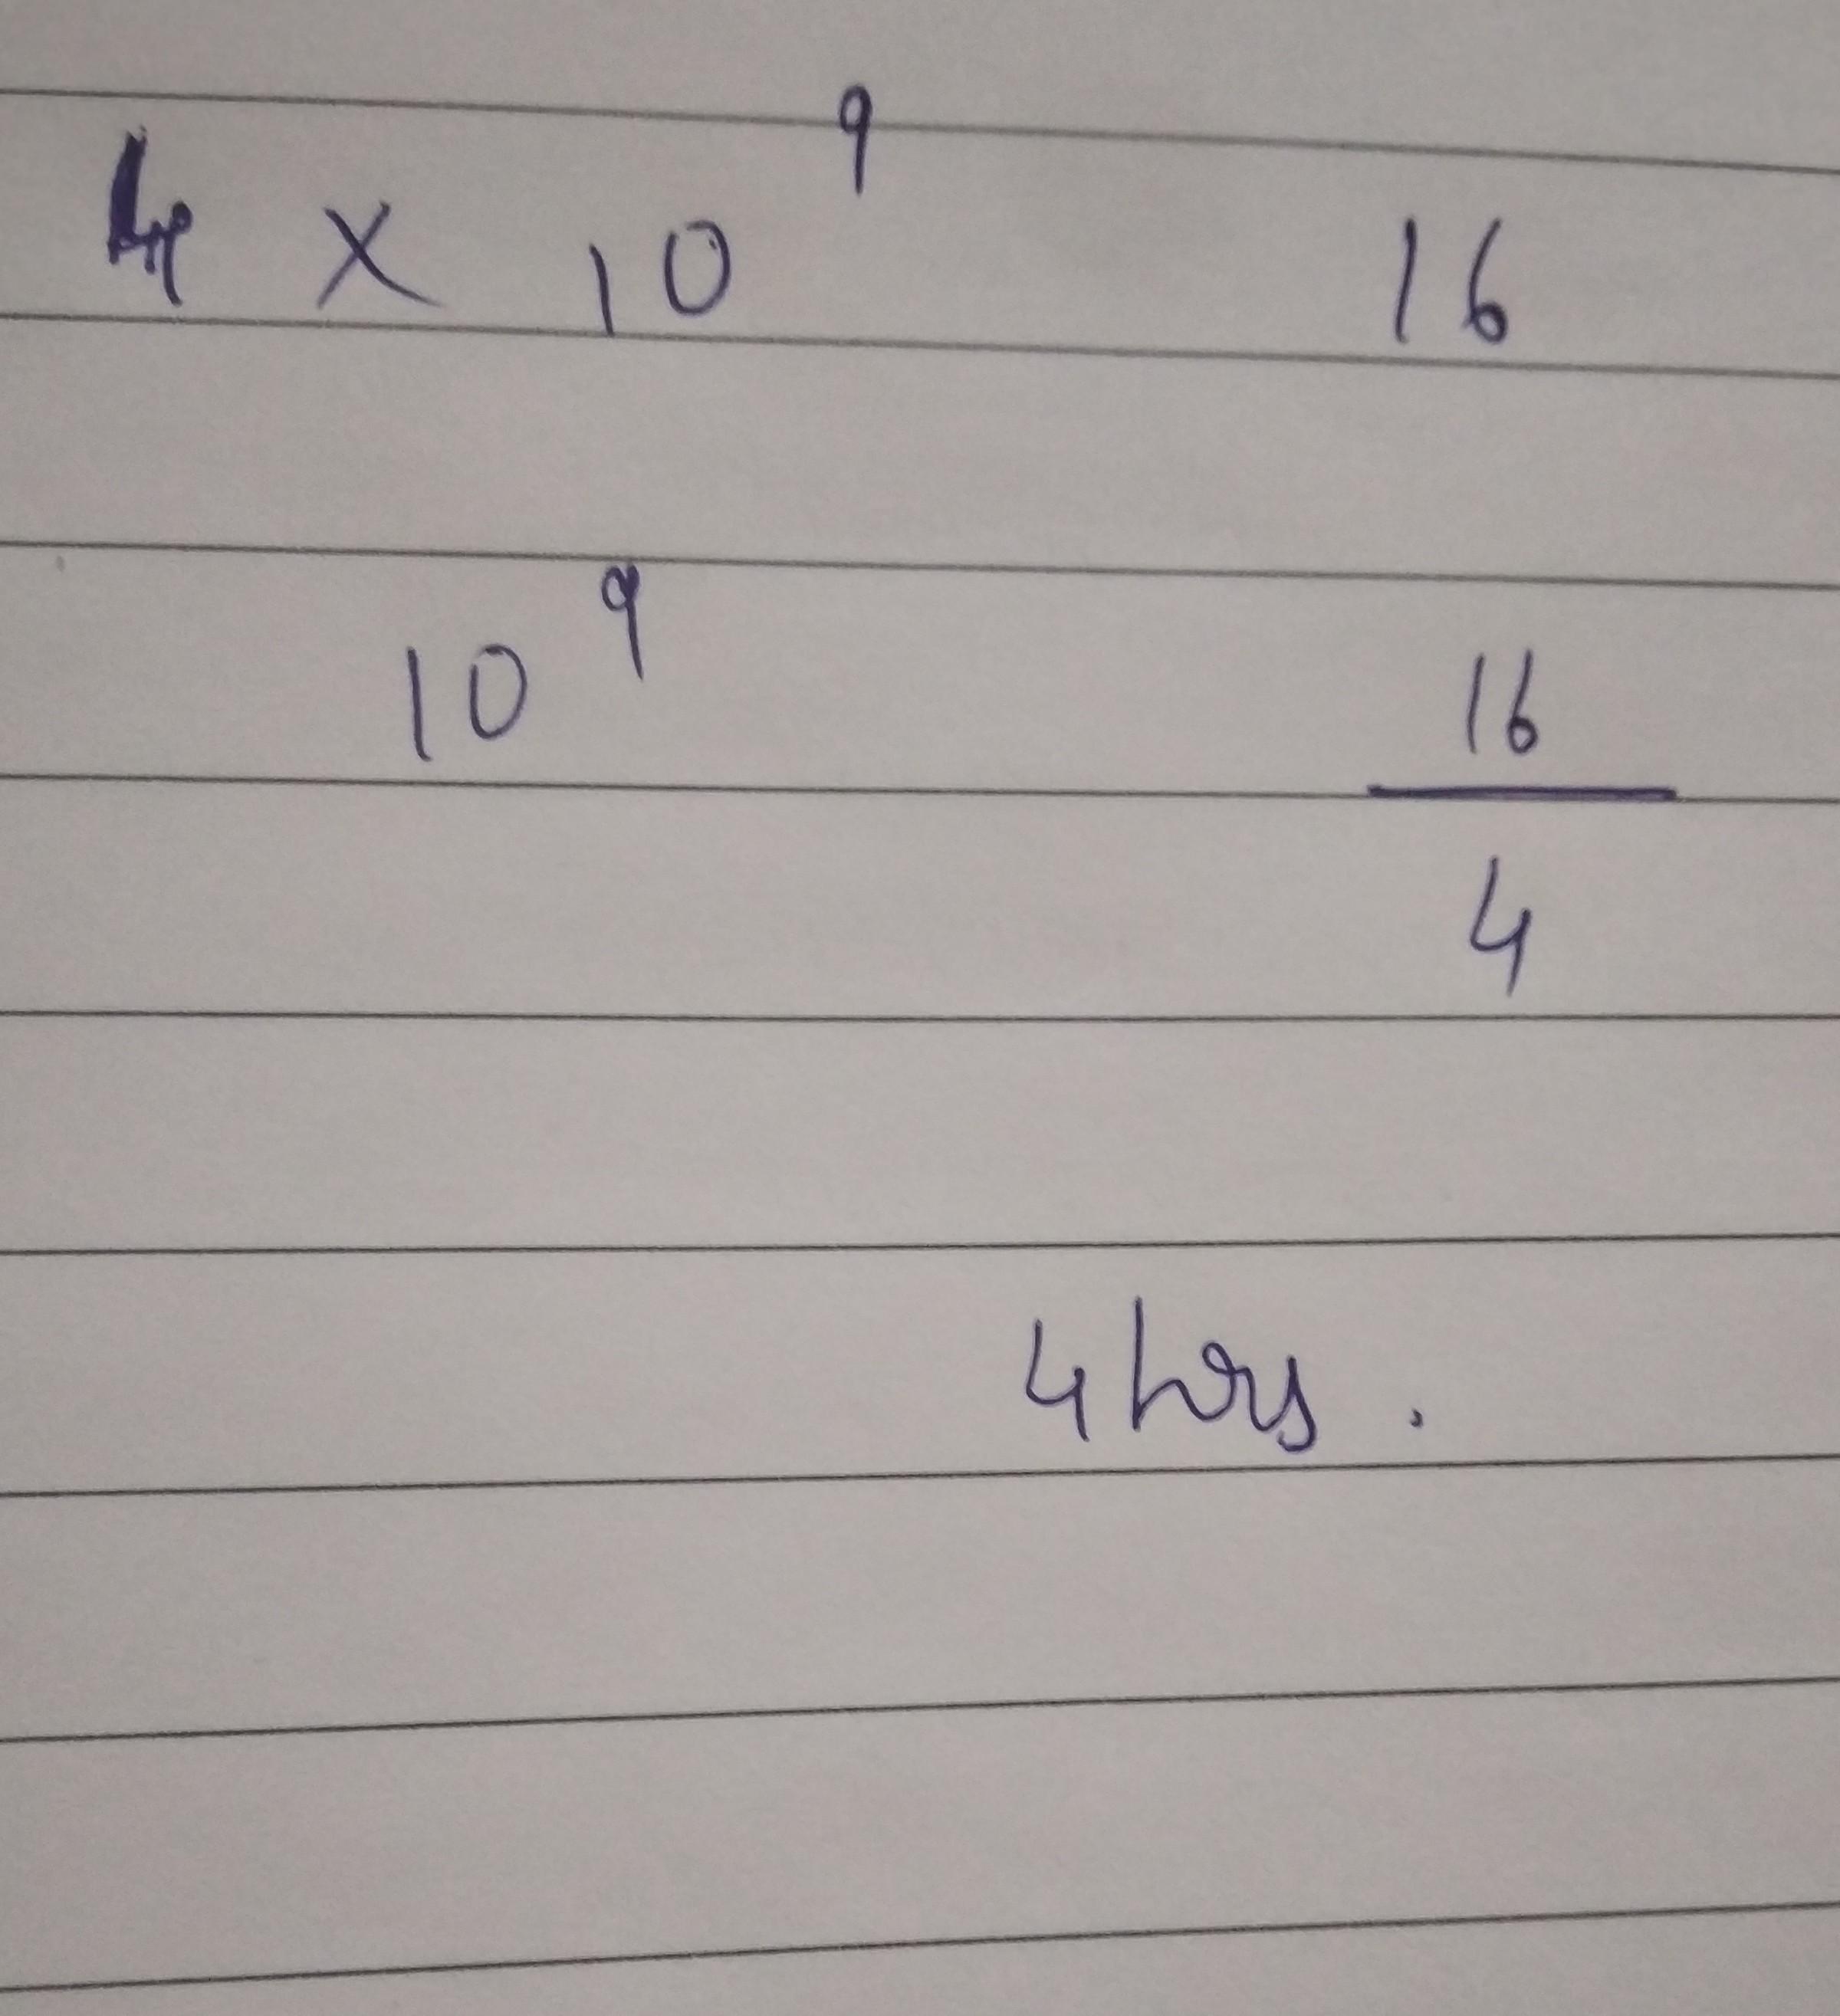 4 x 10⁹ 16
10⁹ 16
4
4 hrs.